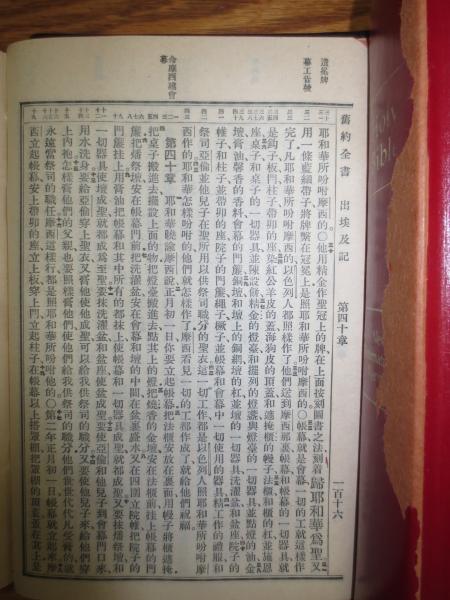 舊約全書　出埃及記　第四十章　一百十六
造冕牌
幕工告竣
耶和華所吩咐摩西的○他用精金作聖冠上的牌在上面按刻圖書之法刻着歸耶和華爲聖又
用一條藍細帶子將牌繫在冠冕上是照耶和華所吩咐摩西的○帳幕就是會幕一切的工就這樣作
完了凡耶和華所吩咐摩西的以色列人都照樣作了他們送到摩西那裏帳幕和帳幕的一切器具就
是鈎子板閂柱子帶卯的座染紅公羊皮的蓋海狗皮的頂蓋和遮掩櫃的幔子法櫃和櫃的杠並施恩
座桌子和桌子的一切器具並陳設餅精金的燈臺和擺列的燈盞與燈臺的一切器具並點燈的油金
壇膏油馨香的香料會幕的門簾銅壇和壇上的銅網壇的杠並壇的一切器具洗濯盆和盆座院子的
帷子和柱子並帶卯的座院子的門簾繩子橛子並帳幕和會幕中一切使用的器具精工作的禮服和
祭司亞倫並他兒子在聖所用以供祭司職分的聖衣這一切工作都是以色列人照耶和華所吩咐摩
西作的耶和華怎樣吩咐的他們就怎樣作了摩西看見一切的工都作成了就給他們祝福
命摩西建會幕
第四十章　耶和華曉諭摩西說正月初一日你要立起帳幕把法櫃安放在裏面用幔子將櫃遮掩
把桌子搬進去擺設上面的物把燈臺搬進去點其上的燈把燒香的金壇安在法櫃前挂上帳幕的門
簾把燔祭壇安在帳幕門前把洗濯盆安在會幕和壇的中間在盆裏盛水又在四圍立院帷把院子的
門簾挂上用膏油把帳幕和其中所有的都抹上使帳幕和一切器具成聖就都成聖又要抹燔祭壇和
一切器具使壇成聖就都成爲至聖要抹洗濯盆和盆座使盆成聖要使亞倫和他兒子到會幕門口來
用水洗身要給亞倫穿上聖衣又膏他使他成聖可以給我供祭司的職分又要使他兒子來給他們穿
上內袍怎樣膏他們的父親也要照樣膏他們使他們給我供祭司的職分他們世世代代凡受膏的就
永遠當祭司的職任摩西這樣行都是照耶和華所吩咐他的○第二年正月初一日帳幕就立起來摩
西立起帳幕安上帶卯的座立上板穿上閂立起柱子在帳幕以上搭罩棚把罩棚的頂蓋蓋在其上是